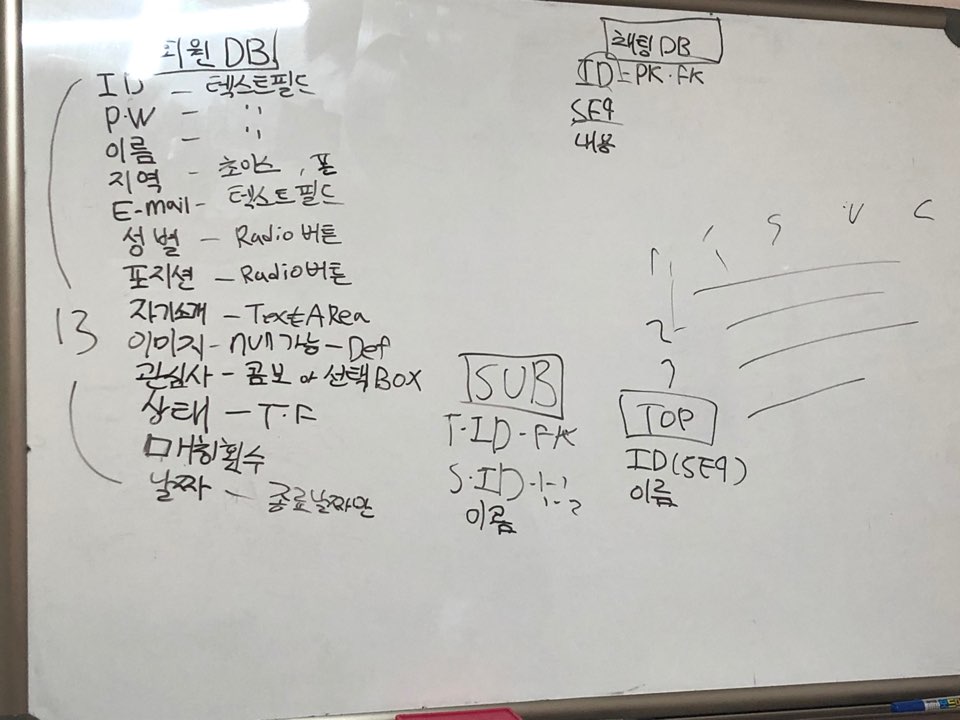 회원 DB
ID - 텍스트필드
P.W - "
이름 - "
지역 - 초이스, 폼
E-mail - 텍스트필드
성별 - Radio 버튼
포지션 - Radio버튼
자기소개 - TextARea
이미지 - null가능 - Def
관심사 - 콤보 or 선택BOX
상태 - T.F
매칭횟수
날짜 - 종료날짜만
13
채팅 DB
ID - PK.FK
SEQ
내용
SUB
T.ID - FK
S.ID - 1-1
1-2
이름
TOP
ID(SEQ)
이름